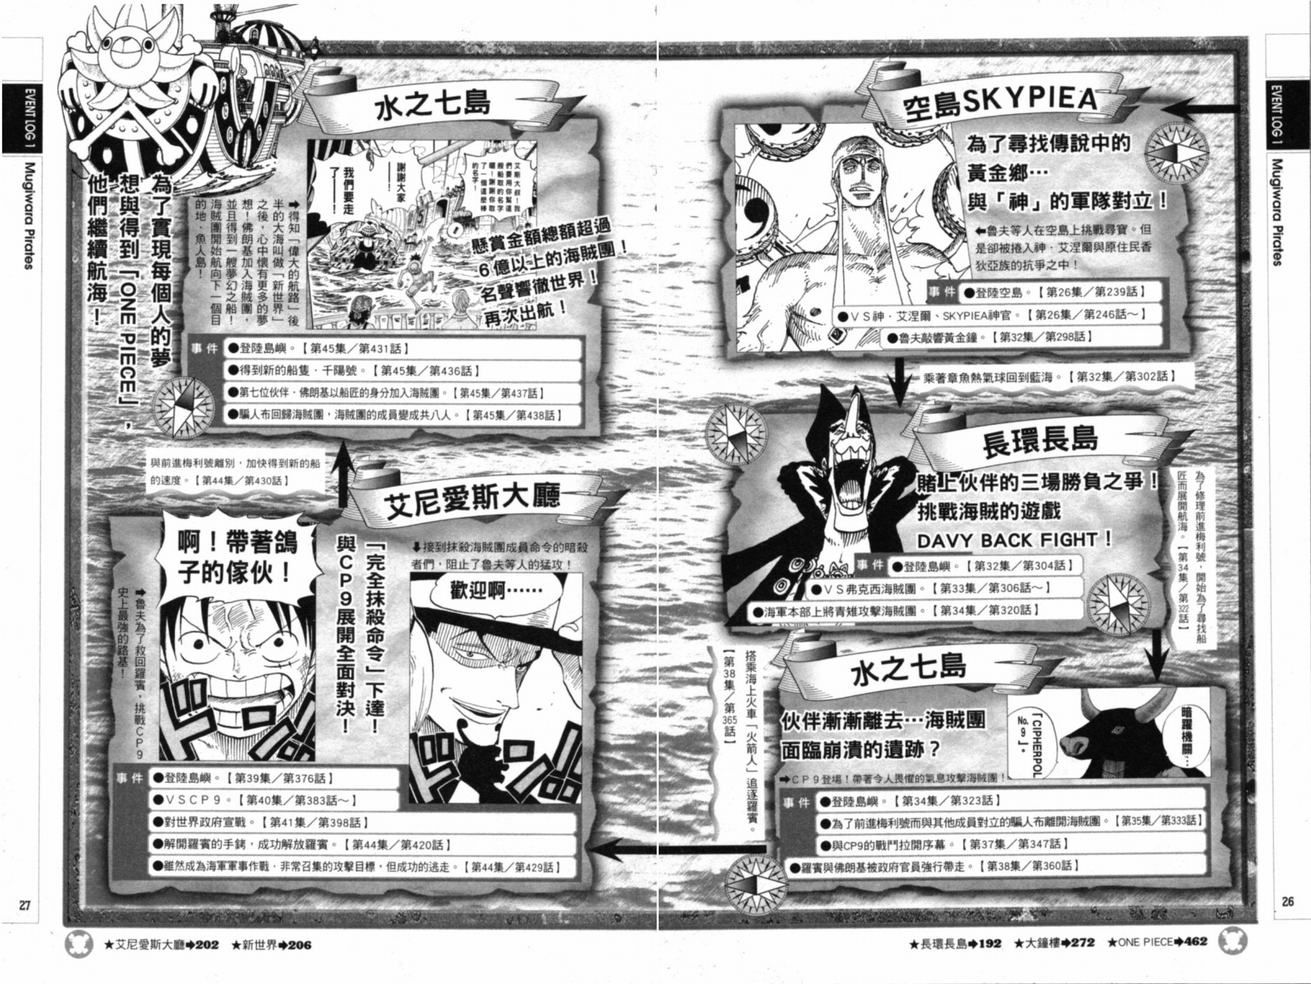 EVENT LOG 1
Mugiwara Pirates
26
空島SKYPIEA
為了尋找傳說中的
黃金鄉…
與「神」的軍隊對立！
⬅魯夫等人在空島上挑戰尋寶。但
是卻被捲入神．艾涅爾與原住民香
狄亞族的抗爭之中！
事件
●登陸空島。【第26集／第239話】
●ＶＳ神．艾涅爾、SKYPIEA神官。【第26集／第246話～】
●魯夫敲響黃金鐘。【第32集／第298話】
乘著章魚熱氣球回到藍海。【第32集／第302話】
長環長島
賭上伙伴的三場勝負之爭！
挑戰海賊的遊戲
DAVY BACK FIGHT！
事件
●登陸島嶼。【第32集／第304話】
●ＶＳ弗克西海賊團。【第33集／第306話～】
●海軍本部上將青雉攻擊海賊團。【第34集／第320話】
為了修理前進梅利號，開始為了尋找船
匠而展開航海。【第34集／第322話】
水之七島
伙伴漸漸離去…海賊團
面臨崩潰的遺跡？
暗躍機關…
「CIPHERPOL
No.9」。
➡ＣＰ９登場！帶著令人畏懼的氣息攻擊海賊團！
事件
●登陸島嶼。【第34集／第323話】
●為了前進梅利號而與其他成員對立的騙人布離開海賊團。【第35集／第333話】
●與CP9的戰鬥拉開序幕。【第37集／第347話】
●羅賓與佛朗基被政府官員強行帶走。【第38集／第360話】
搭乘海上火車「火箭人」追逐羅賓。
【第38集／第365話】
★長環長島➡192 ★大鐘樓➡272 ★ONE PIECE➡462
艾尼愛斯大廳
⬇接到抹殺海賊團成員命令的暗殺
者們，阻止了魯夫等人的猛攻！
歡迎啊……
「完全抹殺命令」下達！
與ＣＰ９展開全面對決！
啊！帶著鴿
子的傢伙！
➡魯夫為了救回羅賓，挑戰ＣＰ９
史上最強的路基！
事件
●登陸島嶼。【第39集／第376話】
●ＶＳＣＰ９。【第40集／第383話～】
●對世界政府宣戰。【第41集／第398話】
●解開羅賓的手銬，成功解放羅賓。【第44集／第420話】
●雖然成為海軍軍事作戰．非常召集的攻擊目標，但成功的逃走。【第44集／第429話】
與前進梅利號離別，加快得到新的船
的速度。【第44集／第430話】
水之七島
艾斯大叔！我
們要用你幫這
艘船取的名字
喔！謝謝你取
了一個這麼棒
的名字！
謝謝大家
——！
我們要走
了——！
懸賞金額總額超過
６億以上的海賊團！
名聲響徹世界！
再次出航！
➡得知「偉大的航路」後
半的大海叫做「新世界」
之後，心中懷有更多的夢
想！佛朗基加入海賊團，
並且得到一艘夢幻之船！
海賊團開始航向下一個目
的地．魚人島！
事件
●登陸島嶼。【第45集／第431話】
●得到新的船隻．千陽號。【第45集／第436話】
●第七位伙伴．佛朗基以船匠的身分加入海賊團。【第45集／第437話】
●騙人布回歸海賊團，海賊團的成員變成共八人。【第45集／第438話】
為了實現每個人的夢
想與得到「ONE PIECE」，
他們繼續航海！
EVENT LOG 1
Mugiwara Pirates
27
★艾尼愛斯大廳➡202 ★新世界➡206